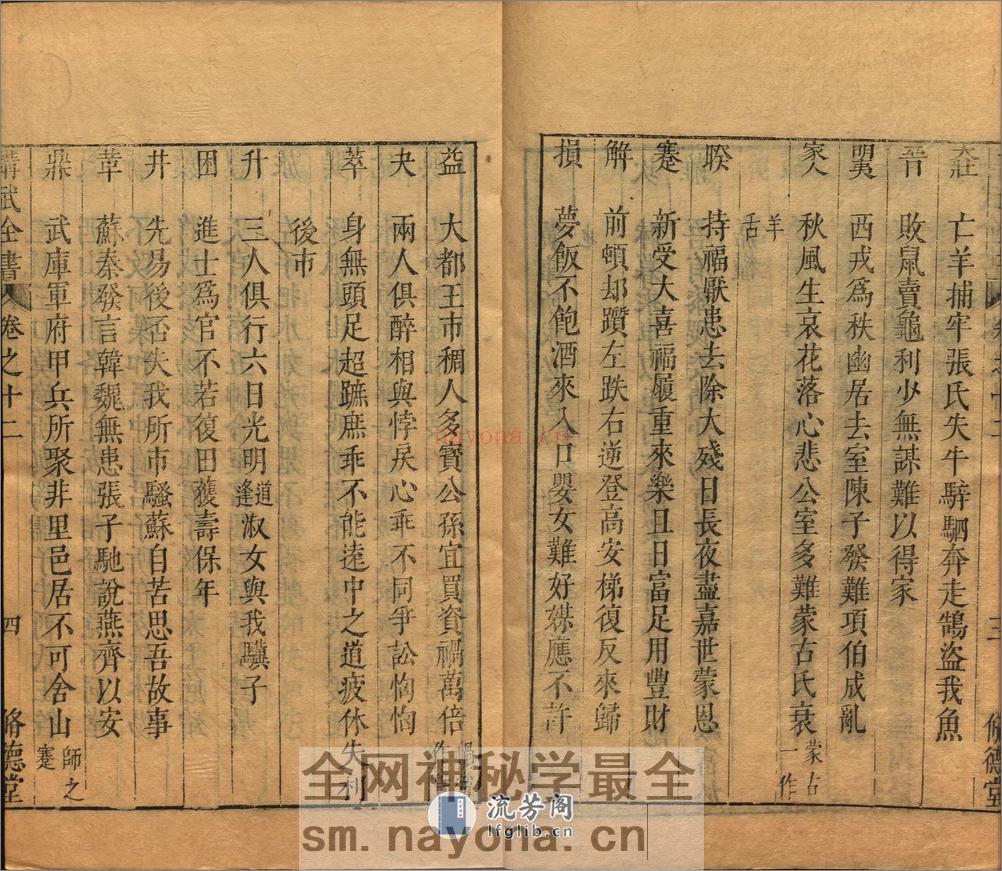 壯 亡羊捕牢張氏失牛騂駟奔走鵠盜我魚
晉 敗鼠賣龜利少無謀難以得家
明夷 西戎為秩幽居去室陳子發難項伯成亂
家人 秋風生哀花落心悲公室多難蒙古氏衰 蒙古一作
羊舌
睽 持福厭患去除大殘日長夜盡嘉世蒙恩
蹇 新受大喜福履重來樂且日富足用豐財
解 前頓却躓左跌右逆登高安梯復反來歸
損 夢飯不飽酒來入口嬰女難好媒應不許
三
脩德堂
益 大都王市稠人多寶公孫宜買資禍萬倍
夬 兩人俱醉相與悖戾心乖不同爭訟恟恟
萃 身無頭足超蹠庶乖不能遠中之道疲休失利
後市
升 三人俱行六日光明道逢淑女與我驥子
困 進士爲官不若復田獲壽保年
井 先易後否失我所市騷蘇自苦思吾故事
革 蘇秦發言韓魏無患張子馳說燕齊以安
鼎 武庫軍府甲兵所聚非里邑居不可舍山 師之蹇
講武全書 卷之十二 四 脩德堂
全网神秘学最全
流芳阁
lfglib.cn
sm.nayona.cn
nayona.cn